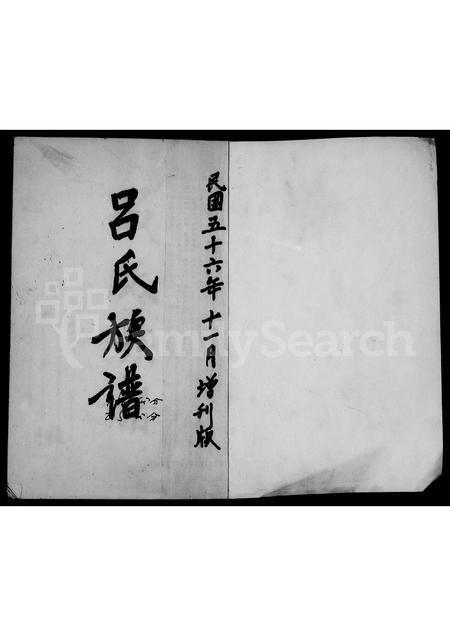 民國五十六年十一月增刊版
呂氏族譜
FamilySearch